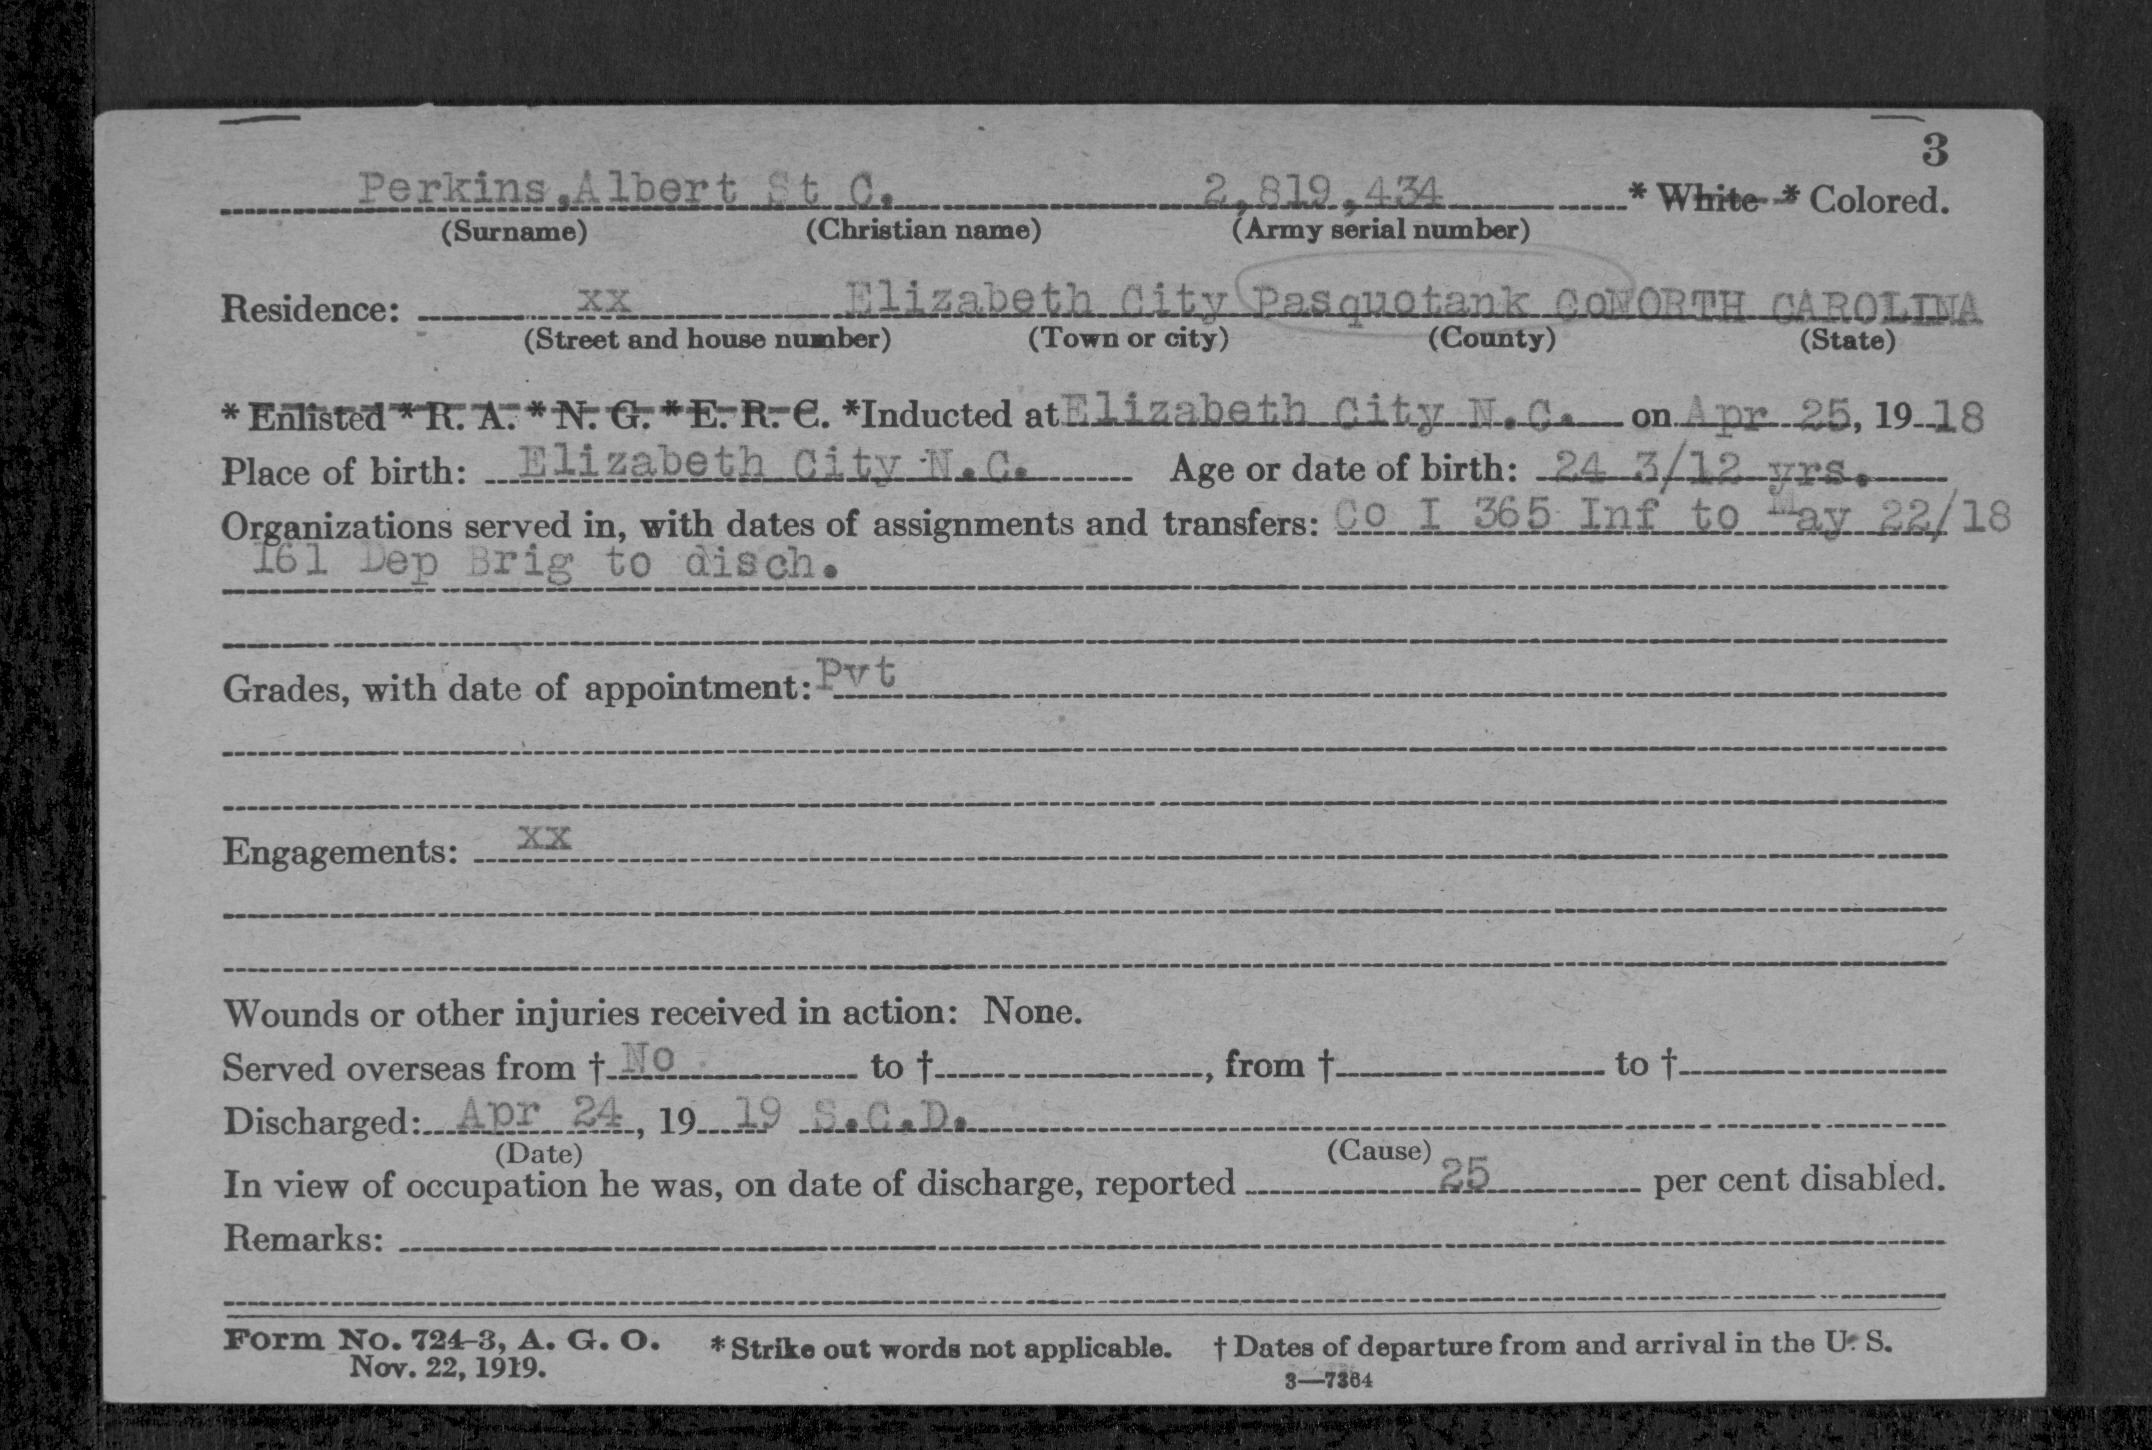 3
Perkins,Albert St C. 2,819,434 * White * Colored.
(Surname) (Christian name) (Army serial number)
Residence: xx Elizabeth City Pasquotank Co NORTH CAROLINA
(Street and house number) (Town or city) (County) (State)
* Enlisted * R. A. * N. G. * E. R. C. *Inducted at Elizabeth City N.C. on Apr 25, 19 18
Place of birth: Elizabeth City N.C. Age or date of birth: 24 3/12 yrs.
Organizations served in, with dates of assignments and transfers: Co I 365 Inf to May 22/18
161 Dep Brig to disch.
Grades, with date of appointment: Pvt
Engagements: xx
Wounds or other injuries received in action: None.
Served overseas from † No to †, from † to †
Discharged: Apr 24, 19 19 S.C.D.
(Date) (Cause)
In view of occupation he was, on date of discharge, reported 25 per cent disabled.
Remarks:
Form No. 724-3, A. G. O. * Strike out words not applicable. † Dates of departure from and arrival in the U. S.
Nov. 22, 1919. 3—7364